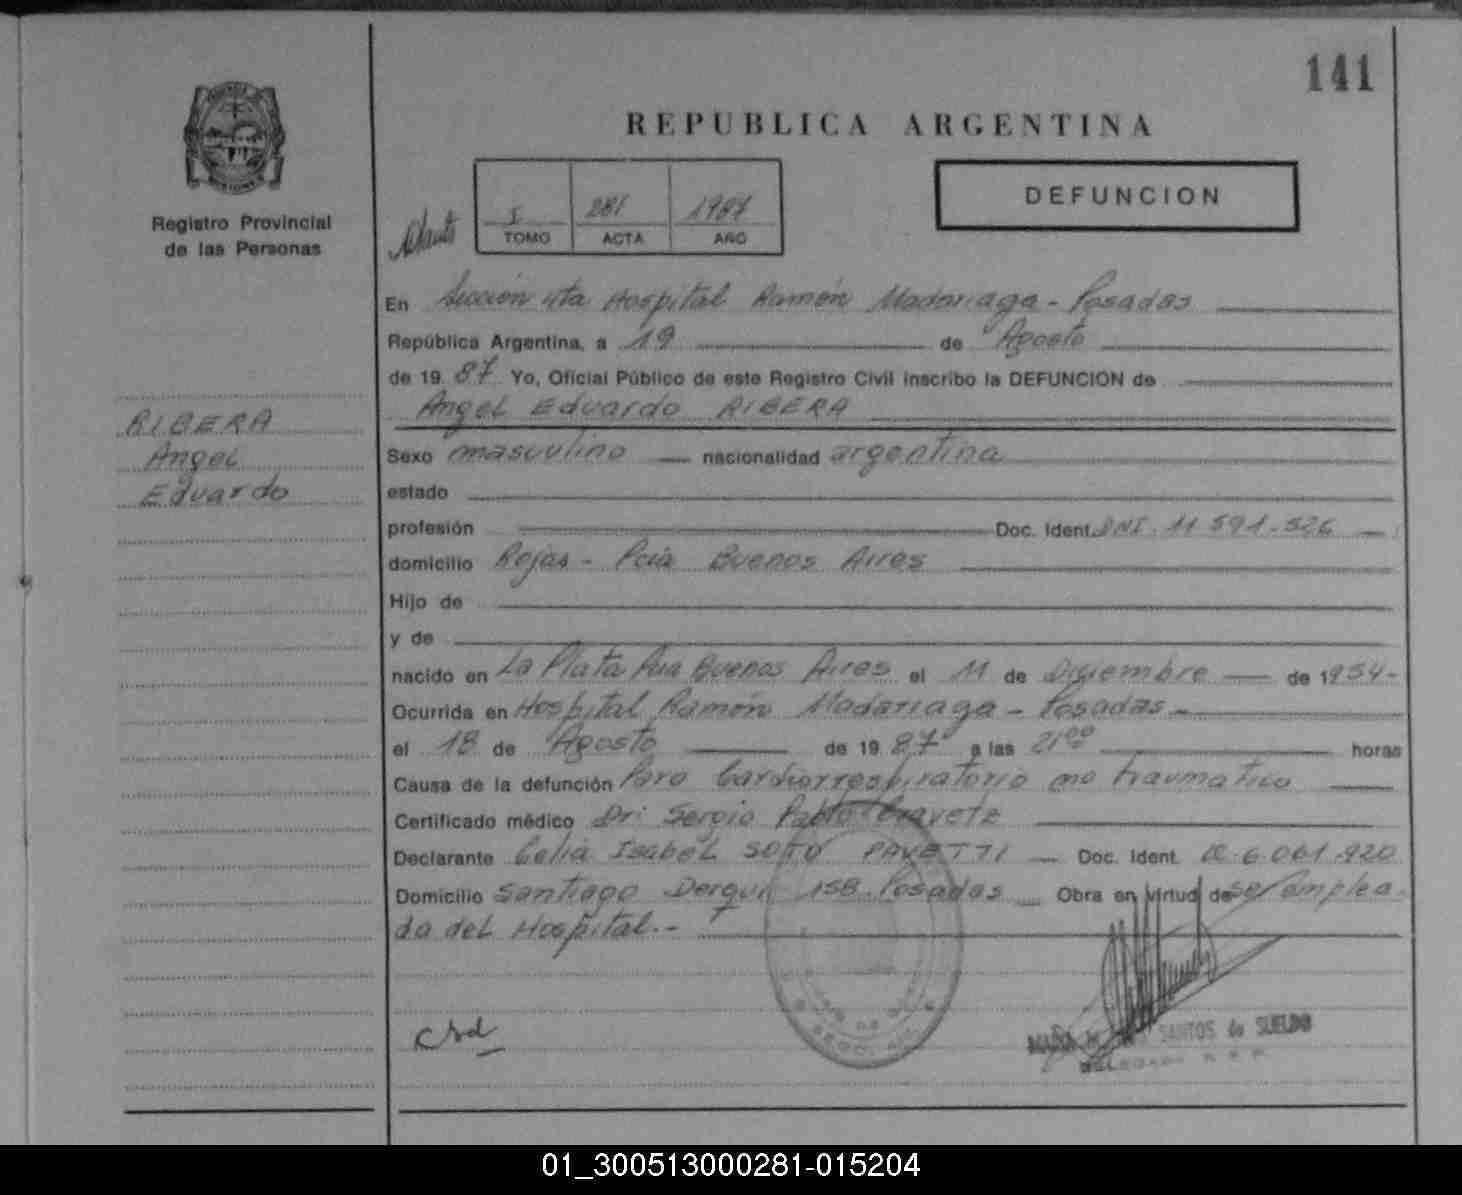 141
REPUBLICA ARGENTINA
DEFUNCION
Registro Provincial
de las Personas
I 281 1987
TOMO ACTA AÑO
En Sección 4ta Hospital Ramón Madariaga - Posadas
República Argentina, a 19 de Agosto
de 19 87 Yo, Oficial Público de este Registro Civil inscribo la DEFUNCION de
Angel Eduardo RIBERA
RIBERA
Angel
Eduardo
Sexo masculino nacionalidad argentina
estado
profesión Doc. Ident. DNI. 11.591.526
domicilio Rojas - Pcia Buenos Aires
Hijo de
y de
nacido en La Plata Pcia Buenos Aires el 11 de Diciembre de 1954-
Ocurrida en Hospital Ramón Madariaga - Posadas -
el 18 de Agosto de 19 87 a las 21⁰⁰ horas
Causa de la defunción Paro Cardiorrespiratorio no traumatico
Certificado médico Dr: Sergio Pablo
Declarante Celia Isabel SOTO PAVETTI Doc. Ident. 6.061.920
Domicilio Santiago Derqui 158 Posadas Obra en virtud de ser emplea-
da del Hospital.-
SANTOS de SUELDO
01_300513000281-015204